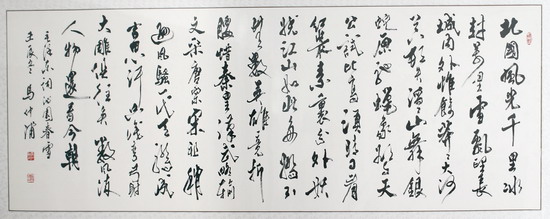 北國風光千里冰
封萬里雪飄望長
城內外惟餘莽莽大河
上下頓失滔滔山舞銀
蛇原馳蠟象欲與天
公試比高須晴日看
紅裝素裹分外妖
嬈江山如此多嬌引
無數英雄競折
腰惜秦皇漢武略輸
文采唐宗宋祖稍
遜風騷一代天驕成
吉思汗只識彎弓射
大雕俱往矣數風流
人物還看今朝
毛澤東詞沁園春雪
壬辰冬馬仲